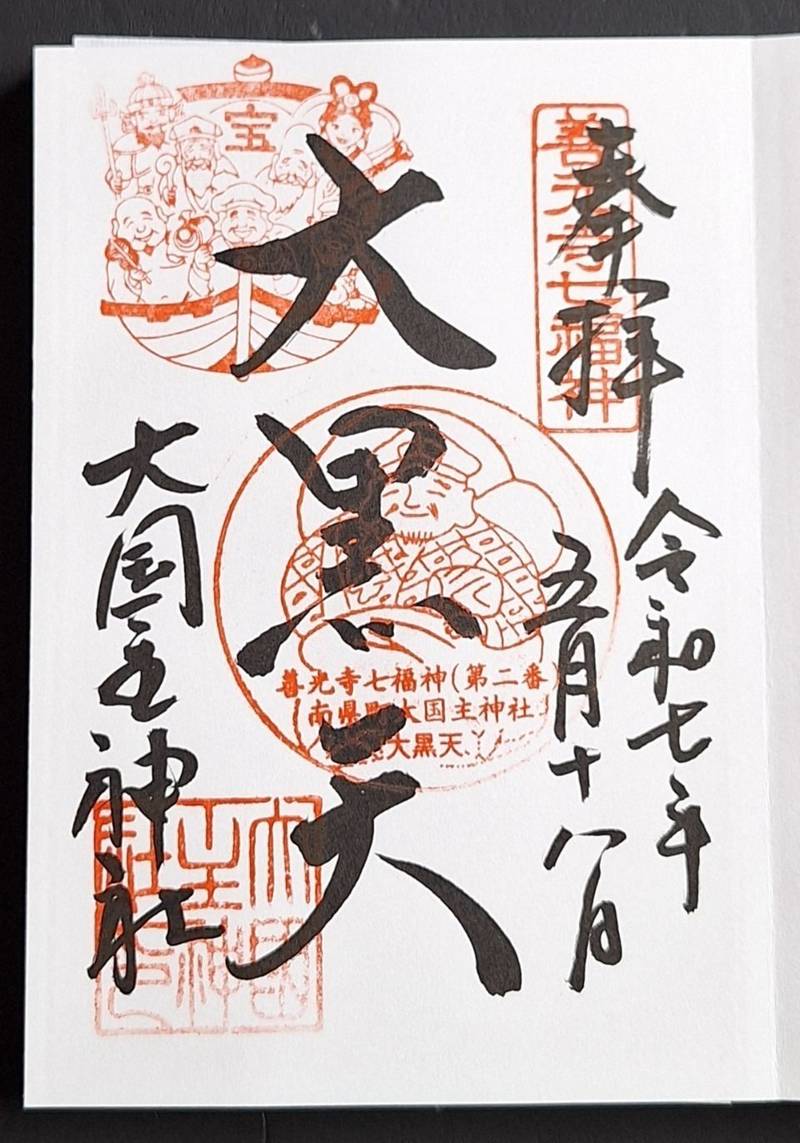 奉拝
善光寺七福神
令和七年
五月十八日
宝
大黒天
善光寺七福神(第二番)
南県町大国主神社
大黒天
大国主神社